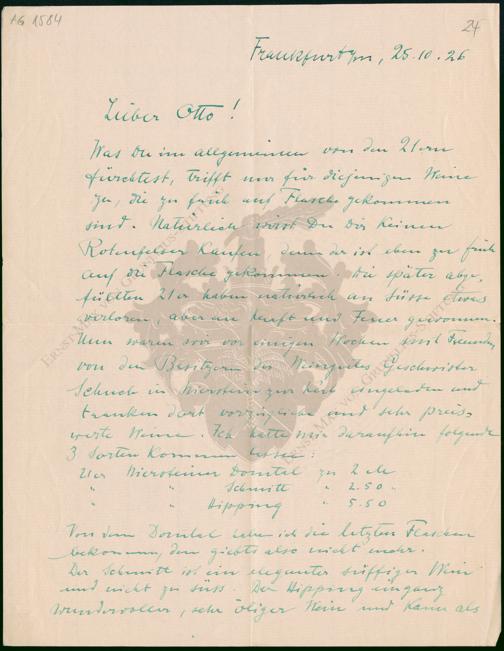 AG 1584
24
Frankfurt/M, 25.10.26
Lieber Otto!
Was Du im allgemeinen von den 21ern
fürchtest, trifft nur für diejenigen Weine
zu, die zu früh auf Flasche gekommen
sind. Natürlich wirst Du Dir keinen
Rotenfelser kaufen denn der ist eben zu früh
auf die Flasche gekommen. Die später abge-
füllten 21er haben natürlich an Süsse etwas
verloren, aber an Kraft und Feuer gewonnen.
Nun waren wir vor einigen Wochen mit Freunden
von den Besitzern des Weingutes Geschwister
Schuch in Nierstein zur eingeladen und
tranken dort vorzügliche und sehr preis-
werte Weine. Ich hatte mir daraufhin folgende
3 Sorten kommen lassen:
21er Niersteiner Domtal zu 2 M
" " Schmitt " 2.50 "
" " Hipping " 5.50
Von dem Domtal habe ich die letzten Flaschen
bekommen, den giebts also nicht mehr.
Der Schmitt ist ein eleganter süffiger Wein
und nicht zu süss. Der Hipping ein ganz
wundervoller, sehr öliger Wein und kann als
ERNST-MAX-VON-GRUNELIUS-STIFTUNG
ERNST-MAX-VON-GRUNELIUS-STIFTUNG